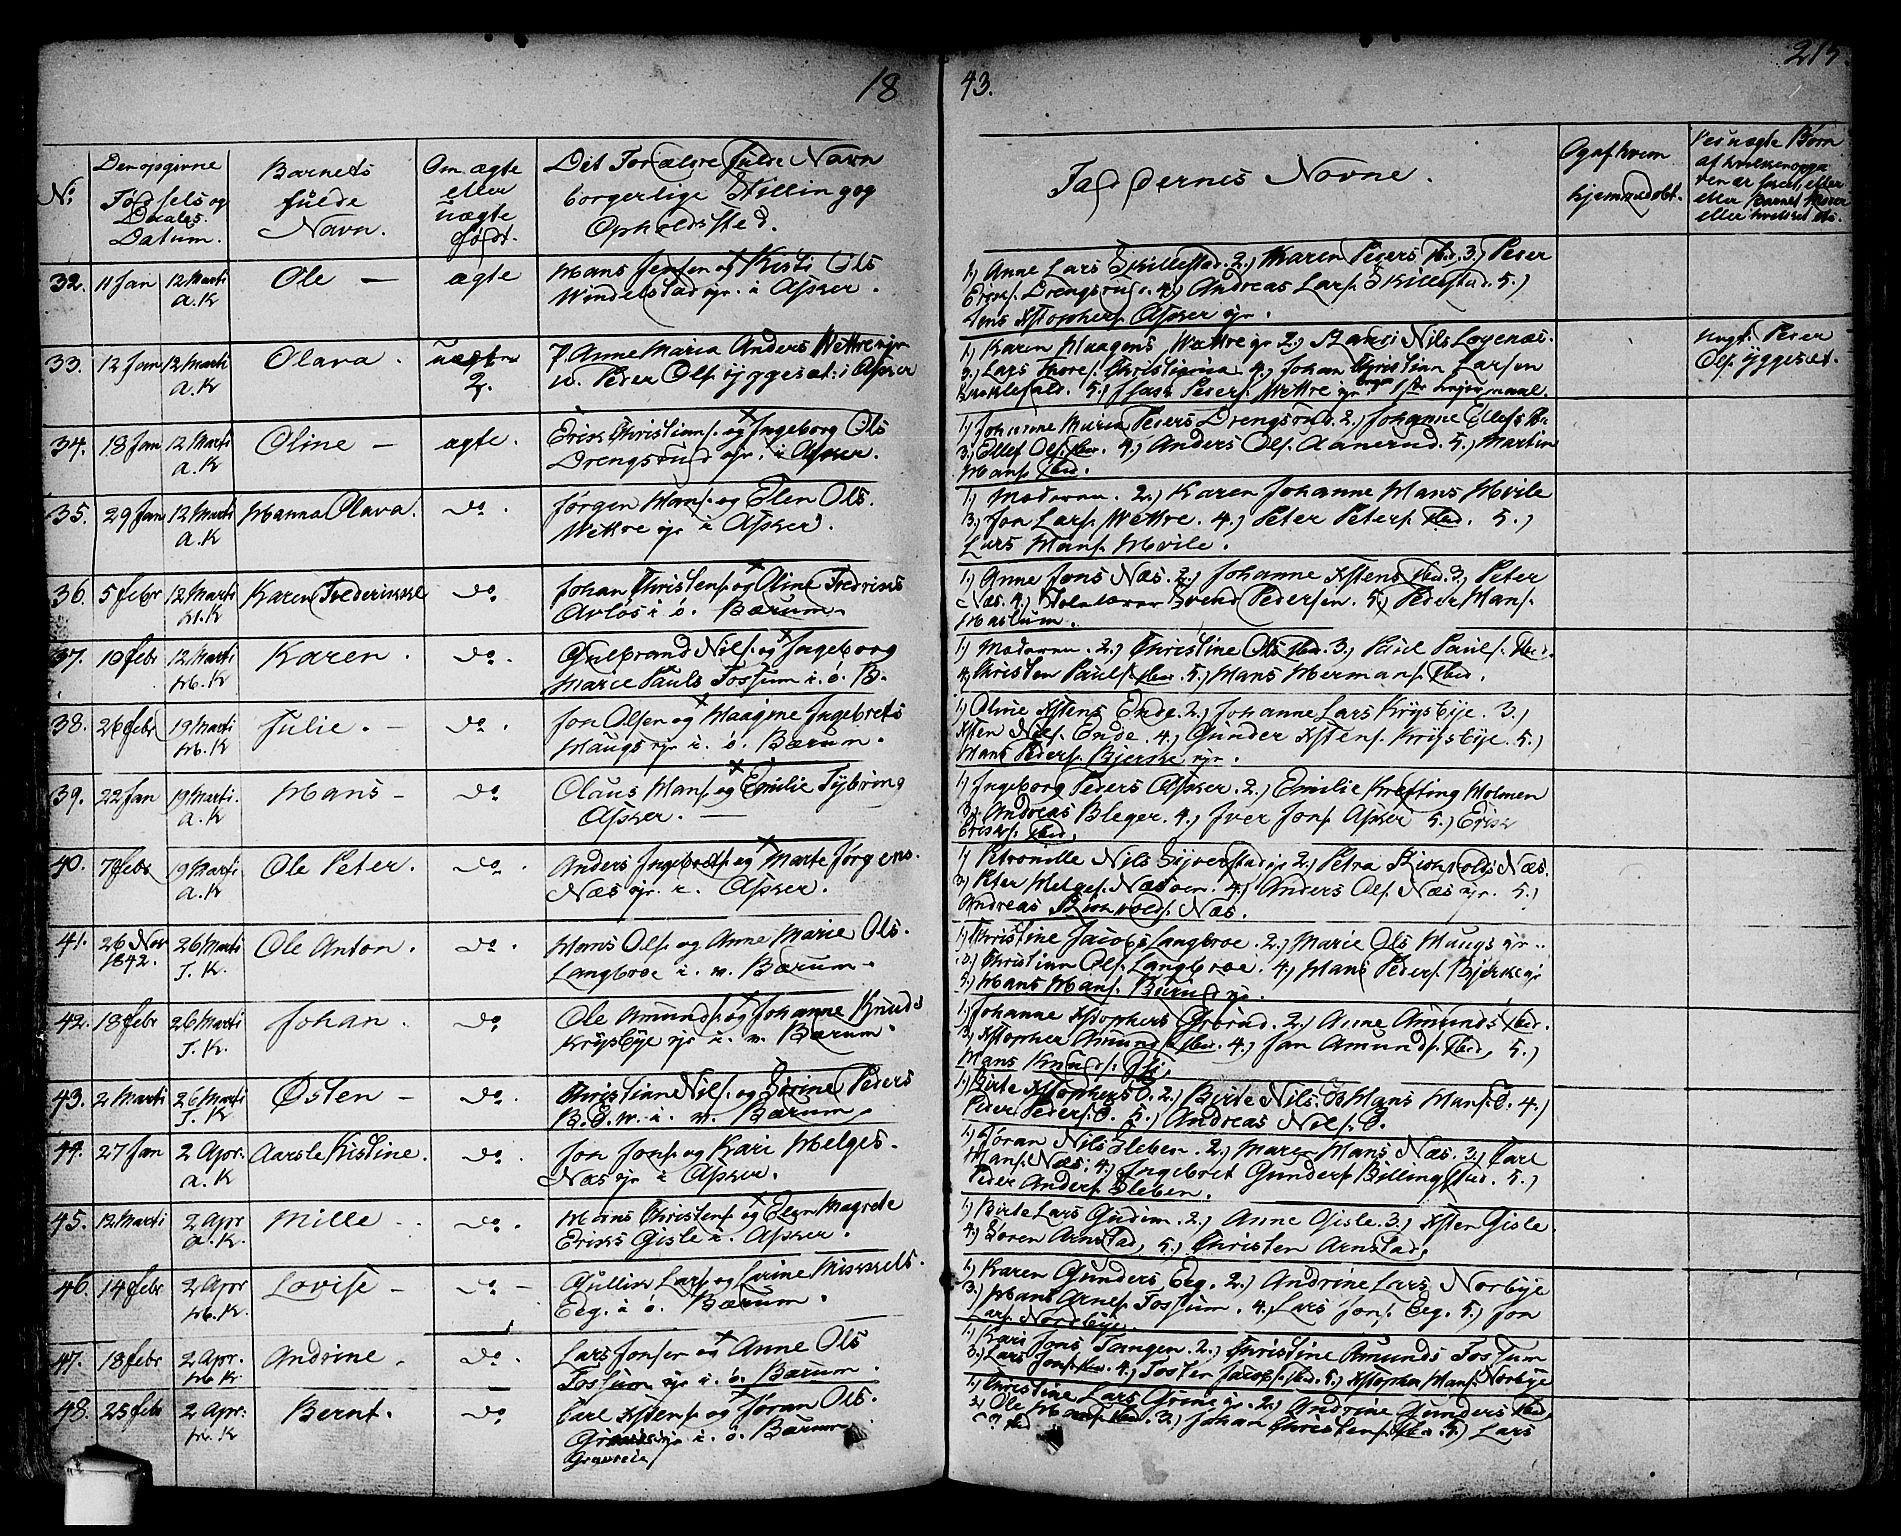 18 43. 215.
No.
Den opgivne
Fødsels og
Daabs
Datum.
Barnets
fulde
Navn.
Om ægte
eller
uægte
født.
Det Forældre fulde Navn
borgerlige Stilling og
Opholdsted.
Faddernes Navne.
Og af hvem
hjemmedøbt.
32. 11 Jan 12 Marti
A.K
Ole —
ægte
Hans Jensen og Kisti Ols
Windelstad ejr. i Asker.
1.) Anne Lars Skillestad. 2.) Karen Peders ibid. 3.) Peder
Drengsrud. 4.) Andreas Lars. Skillestad. 5.)
Jens Xstophers. Asker ejr.
33. 12 Jan 12 Marti
A.K
Olava.
uægte
2.
Anne Maria Anders Wettre ejr
Peder Ols. Yggeset. i Asker
1.) Karen Haagens Wettre gr 2.) Nils Løgenæs.
3.) Lars Thores. 4.) Johan Christian Larsen
5.) Isach Peders. Wettre
uægt. Peder
Ols. Yggeset.
34. 18 Jan 12 Marti
A.K
Oline —
ægte.
Erik Christians. og Ingeborg Ols
Drengsrud ejr. i Asker.
1.) Johanne Maria Peders Drengsrud. 2.) Johanne Ellefs ib.
3.) Ellef Ols. ibid. 4.) Anders Ols. Aanerud. 5.) Martin
Hans. ibid.
35. 29 Jan 12 Marti
A.K
Hanna Olava.
do.
Jørgen Hans. og Elen Ols.
Wettre ejr i Asker.
1.) Moderen. 2.) Karen Johanne Hans Hvile
3.) Jon Lars. Wettre. 4.) Peter Peters. ibid. 5.)
Lars Hans. Hvile.
36. 5 Febr 12 Marti
H.K
Karen Frederikke
do.
Johan Christens. og Oline Fredriks
Avløs i ø. Bærum.
1.) Anne Jons Næs. 2.) Johanne Xstens ibid. 3.) Peter
Næs. 4.) Svend Pedersen. 5.) Peder Hans.
Haslum.
37. 10 Febr 12 Marti
H.K
Karen.
do.
Gulbrand Nils. og Ingeborg
Marie Pauls Fossum i. ø. B.
1.) Moderen. 2.) Christine Ols ibid. 3.) Paul Pauls. ibid.
4.) Christen Pauls. ibid. 5.) Hans Hermans. ibid.
38. 26 Febr 19 Marti
H.K
Julie. —
do.
Jon Olsen og Haagine Ingebrets
Haugs ejr i. ø. Bærum.
1.) Oline Xstens Ende. 2.) Johanne Lars Krysbye. 3.)
Xsten Nils. Ende. 4.) Gunder Xstens. Krysbye. 5.)
Hans Peders. Bjerke ejr.
39. 22 Jan 19 Marti.
A.K
Hans —
do.
Olaus Hans. og Emilie Tybring
Asker. —
1.) Ingeborg Peders Asker. 2.) Emilie Krefting Holmen
3.) Andreas Bleger. 4.) Iver Jons. Asker 5.) Erik
Eriks. ibid.
40. 7 Febr 19 Marti
A.K
Ole Peter.
do.
Anders Ingebrets. og Marte Jørgens.
Næs ejr. i. Asker.
1.) Petronille Nils Syverstad gr 2.) Petra Næs.
3.) Peter Helges. Næsøen. 4.) Anders Ols. Næs ejr. 5.)
Andreas Næs.
41. 26 Nov 26 Marti
1842. T.K.
Ole Anton.
do.
Hans Ols. og Anne Marie Ols.
Langbroe i. v. Bærum.
1.) Christine Jacobs Langbroe. 2.) Marie Ols Haugs gr.
3.) Christian Ols. Langbroe. 4.) Hans Peders. Bjerke gr
5.) Hans Hans. Burud gr.
42. 18 Febr 26 Marti
T.K.
Johan.
do.
Ole Amunds. og Johanne Knuds
Krysbye ejr i. v. Bærum.
1.) Johanne Xstophers Grorud. 2.) Anne Amunds ibid.
3.) Xstopher Amunds. ibid. 4.) Jan Amunds. ibid, 5.)
Hans Knuds.
43. 2 Marti 26 Marti
T.K.
Østen —
do.
Christian Nils. og Sørine Peders
i. v. Bærum.
1.) Birte Xstophers 2.) Birte Nils Hans Hans. 4.)
Peder Peders. 5.) Andreas Nils.
44. 27 Jan 2 Apr.
A.K
Aarsle Kistine.
do.
Jon Jons. og Kari Helges.
Næs ejr i Asker.
1.) Gjøran Nils Sleben. 2.) Maren Hans Næs. 3.) Carl
Hans. Næs. 4.) Ingebret Gunders. Billingstad. 5.)
Peder Anders. Sleben.
45. 12 Marti 2 Apr
A.K.
Mille
do.
Hans Christens. og Elen Magrete
Eriks Gisle i. Asker.
1.) Birte Lars Gudim. 2.) Anne Gisle. 3.) Xsten Gisle.
4.) Søren Arnstad, 5.) Christen Arnstad,
46. 14 Febr 2 Apr
H.K.
Lovise —
do. —
Gullik Lars. og Karine Mikkels.
Eeg. i ø. Bærum.
1.) Karen Gunders Eeg. 2.) Andrine Lars Norbye
3.) Hans Arnes. Fossum. 4.) Lars Jons. Eeg. 5.) Jon
Lars. Nordbye.
47. 18 Febr 2 Apr.
H.K.
Andrine —
do.
Lars Jonsen og Anne Ols
Fossum ejr i. ø. Bærum.
1.) Kari Jons Tangen. 2.) Christine Amunds Fossum
3.) Lars Jons. ibid. 4.) Foster Jacobs. ibid. 5.) Xstopher Hans. Norbye
48. 25 Febr 2 Apr.
H.K
Bernt.
do
Carl Xstens. og Gjøran Ols.
i. ø. Bærum
1.) Christine Lars Grine gr. 2.) Andrine Gunders ibid,
Ole ibid. 3.) Johan Christens. ibid. 5.) Lars